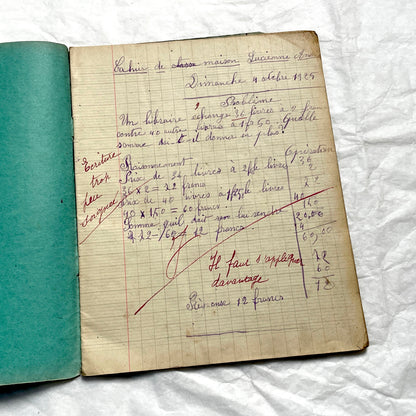 Cahier de maison Lucienne
Dimanche 4 octobre 1925
Problème
Un libraire échange 36 livres à 2 f
contre 40 autres livres à 1f50. Quelle
somme doit-il donner en plus?
Raisonnement
Opération
Prix de 36 livres à 2f le livre
36 x 2 = 72 francs
Prix de 40 livres à 1f50 le livre
40 x 1,50 = 60 francs
Somme qu'il doit
72 - 60 = 12 francs
Réponse 12 francs
Ecriture
trop
peu
soignée
Il faut s'appliquer
davantage
36
2
72
60,00
72
60
12